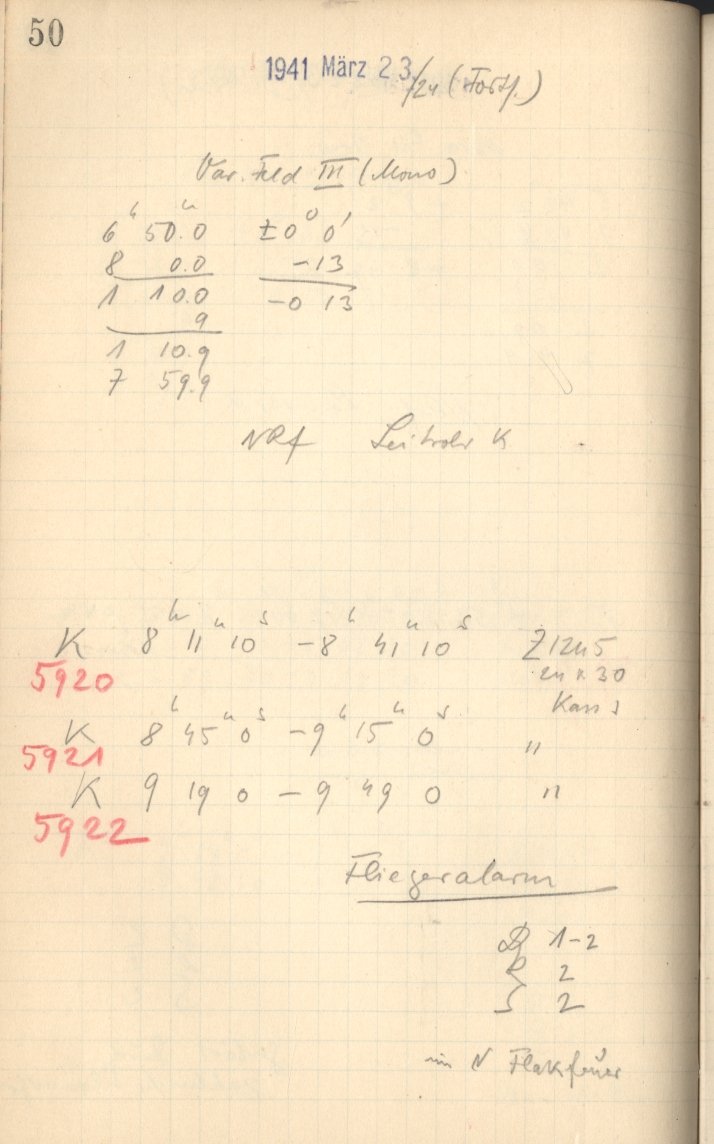 50
1941 März 23./24 (Forts.)
Var. Feld III (Mono)
6h 50m.0 ±0° 0'
8 0.0 -13
1 10.0 -0 13
9
1 10.9
7 59.9
NRf Leitrohr K
K 8h 11m 10s - 8h 41m 10s Z1245
5920 24 x 30
Kass 1
K 8h 45m 0s - 9h 15m 0s "
5921
K 9 19 0 - 9 49 0 "
5922
Fliegeralarm
D 1-2
R 2
S 2
im N Flakfeuer